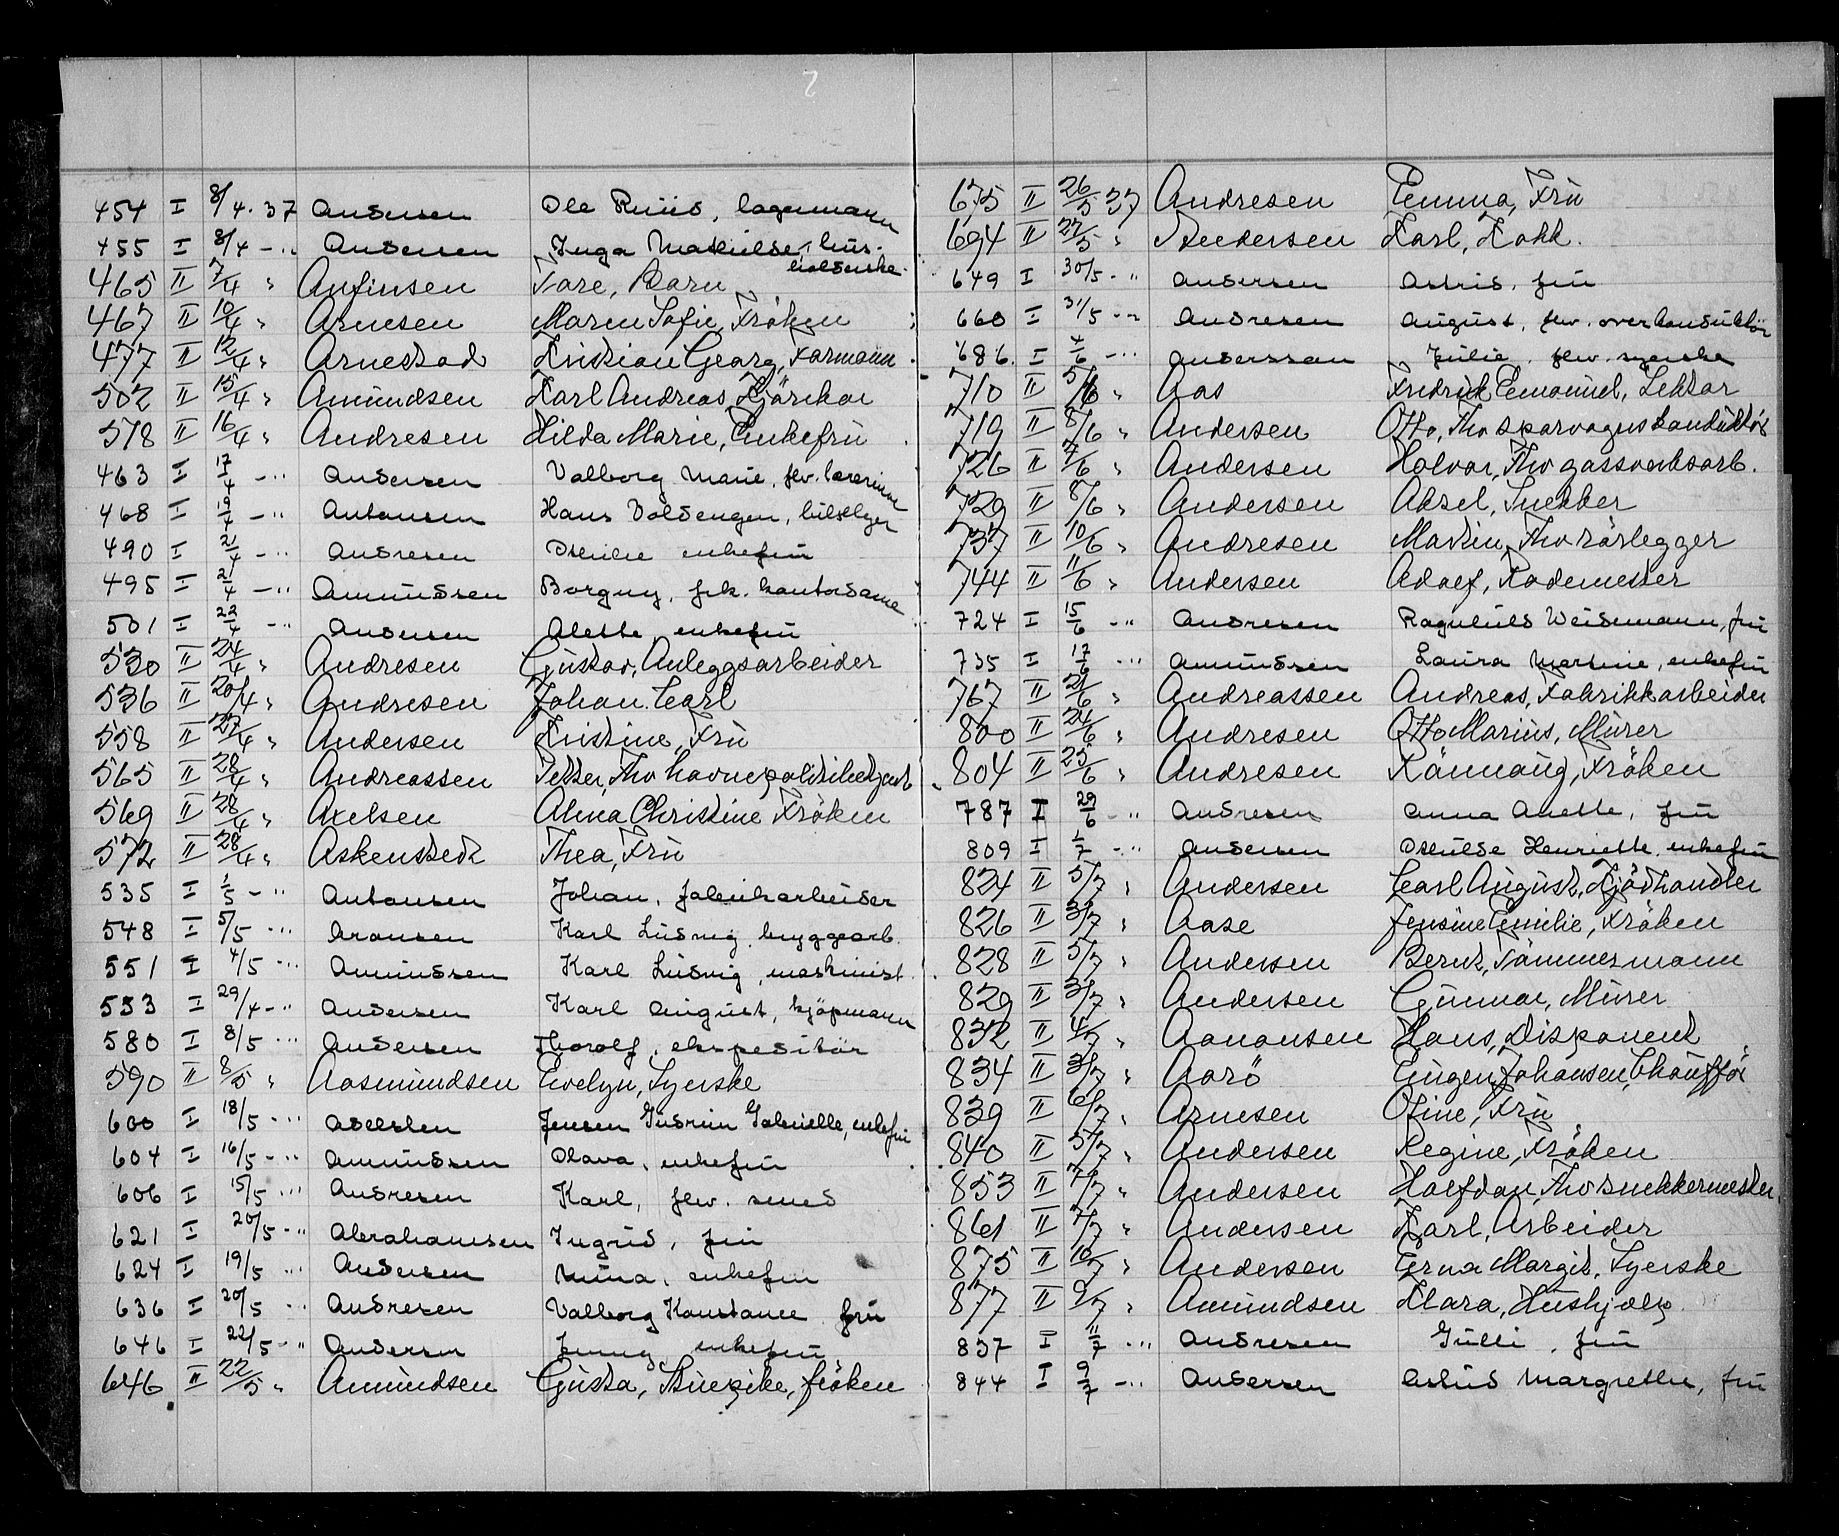 2
454 I 8/4.37 Andersen Ole Ruud, lagermann
455 I 8/4 -" Andersen Inga Mathilde, hus-
holderske.
465 II 7/4 " Anfinsen Tore, Barn
467 II 10/4 " Arnesen Maren Sofie, Fröken
477 II 12/4 " Arnestad Kristian Georg, Formann
502 II 15/4 " Amundsen Karl Andreas Kjörekar
518 II 16/4 " Andresen Hilda Marie, Enkefru
463 I 17/4 -" Andersen Valborg Marie, fhv. lærerinne
468 I 19/4 -" Antonsen Hans Voldengen, hülselger
490 I 21/4 -" Andresen Othilie enkefru
495 I 21/4 -" Amundsen Borgny, frk. kontordame
501 I 22/4 -" Andersen Alette, enkefru
530 II 24/4 " Andresen Gustav, Anleggsarbeider
536 II 20/4 " Andresen Johan Carl
558 II 27/4 " Andersen Kristine, Fru
565 II 28/4 " Andreassen Petter, Fhv havnepolitibetjent
569 II 28/4 " Axelsen Alma Christine Fröken
572 II 28/4 " Askenstedt Thea, Fru
535 I 1/5 -" Antonsen Johan, fabrikarbeider
548 I 5/5 -" Aronsen Karl Ludvig, bryggearb.
551 I 4/5 -" Amundsen Karl Ludvig, maskinist.
553 I 29/4 -" Andersen Karl August, kjöpmann
580 I 8/5 -" Andersen Thorolf, ekspeditör
590 II 8/5 " Aasmundsen Evelyn, Syerske
600 I 18/5 -" Adelsten Jensen Gudrun Gabrielle, enkefru
604 I 16/5 -" Amundsen Olava, enkefru
606 I 15/5 -" Andresen Karl, fhv. smed
621 I 20/5 -" Abrahamsen Ingrid, fru
624 I 19/5 -" Andersen Mina, enkefru
636 I 20/5 -" Andresen Valborg Konstance fru
646 I 22/5 -" Andersen Jenny, enkefru
646 II 22/5 " Amundsen Gusta, Stuepike, fröken
675 II 26/5 37 Andresen Emma, Fru
694 II 27/5 " Andersen Karl, Kokk.
649 I 30/5 -" Andersen Astrid, fru
660 I 31/5 -" Andresen August, fhv. overkonduktör
686. I 4/6 -" Anderssen Julie, fhv. syerske
710 II 5/6 " Aas Fredrik Emanuel, Lektor
719 II 8/6 " Andersen Otto, Fhv sporvognskonduktör
726 II 7/6 " Andersen Halvor, Fhv gassverksarb.
729 II 8/6 " Andersen Aksel, Snekker
737 II 10/6 " Andresen Martin, Fhv rörlegger
744 II 11/6 " Andersen Adolf, Rodemester
724 I 15/6 -" Andresen Ragnhild Weidemann, fru
735 I 17/6 -" Amundsen Laura Martine, enkefru
767 II 21/6 " Andreassen Andreas, Fabrikkarbeider
800 II 24/6 " Andresen Otto Marius, Murer
804 II 25/6 " Andresen Rönnaug, Fröken
787 I 29/6 -" Andresen Anna Anette, fru
809 I 1/7 -" Andersen Othilde Henriette, enkefru
824 II 5/7 " Andersen Carl August, Kjödhandler
826 II 3/7 " Aase Jensine Emilie, Fröken
828 II 5/7 " Andersen Bernt, Tömmermann
829 II 3/7 " Andersen Gunnar, Murer
832 II 4/7 " Aanonsen Hans, Disponent
834 II 3/7 " Aarö Eugen Johansen, Chaufför
839 II 6/7 " Arnesen Ofine, Fru
840 II 5/7 " Andersen Regine, Fröken
853 II 7/7 " Andersen Halfdan, Fhv snekkermester.
861 II 7/7 " Andersen Karl, Arbeider
875 II 10/7 " Andersen Erna Margit, Syerske
877 II 9/7 " Amundsen Klara, Hushjelp
837 I 11/7 -" Andresen Gulli, fru
844 I 9/7 -" Andersen Astrid Margrethe, fru